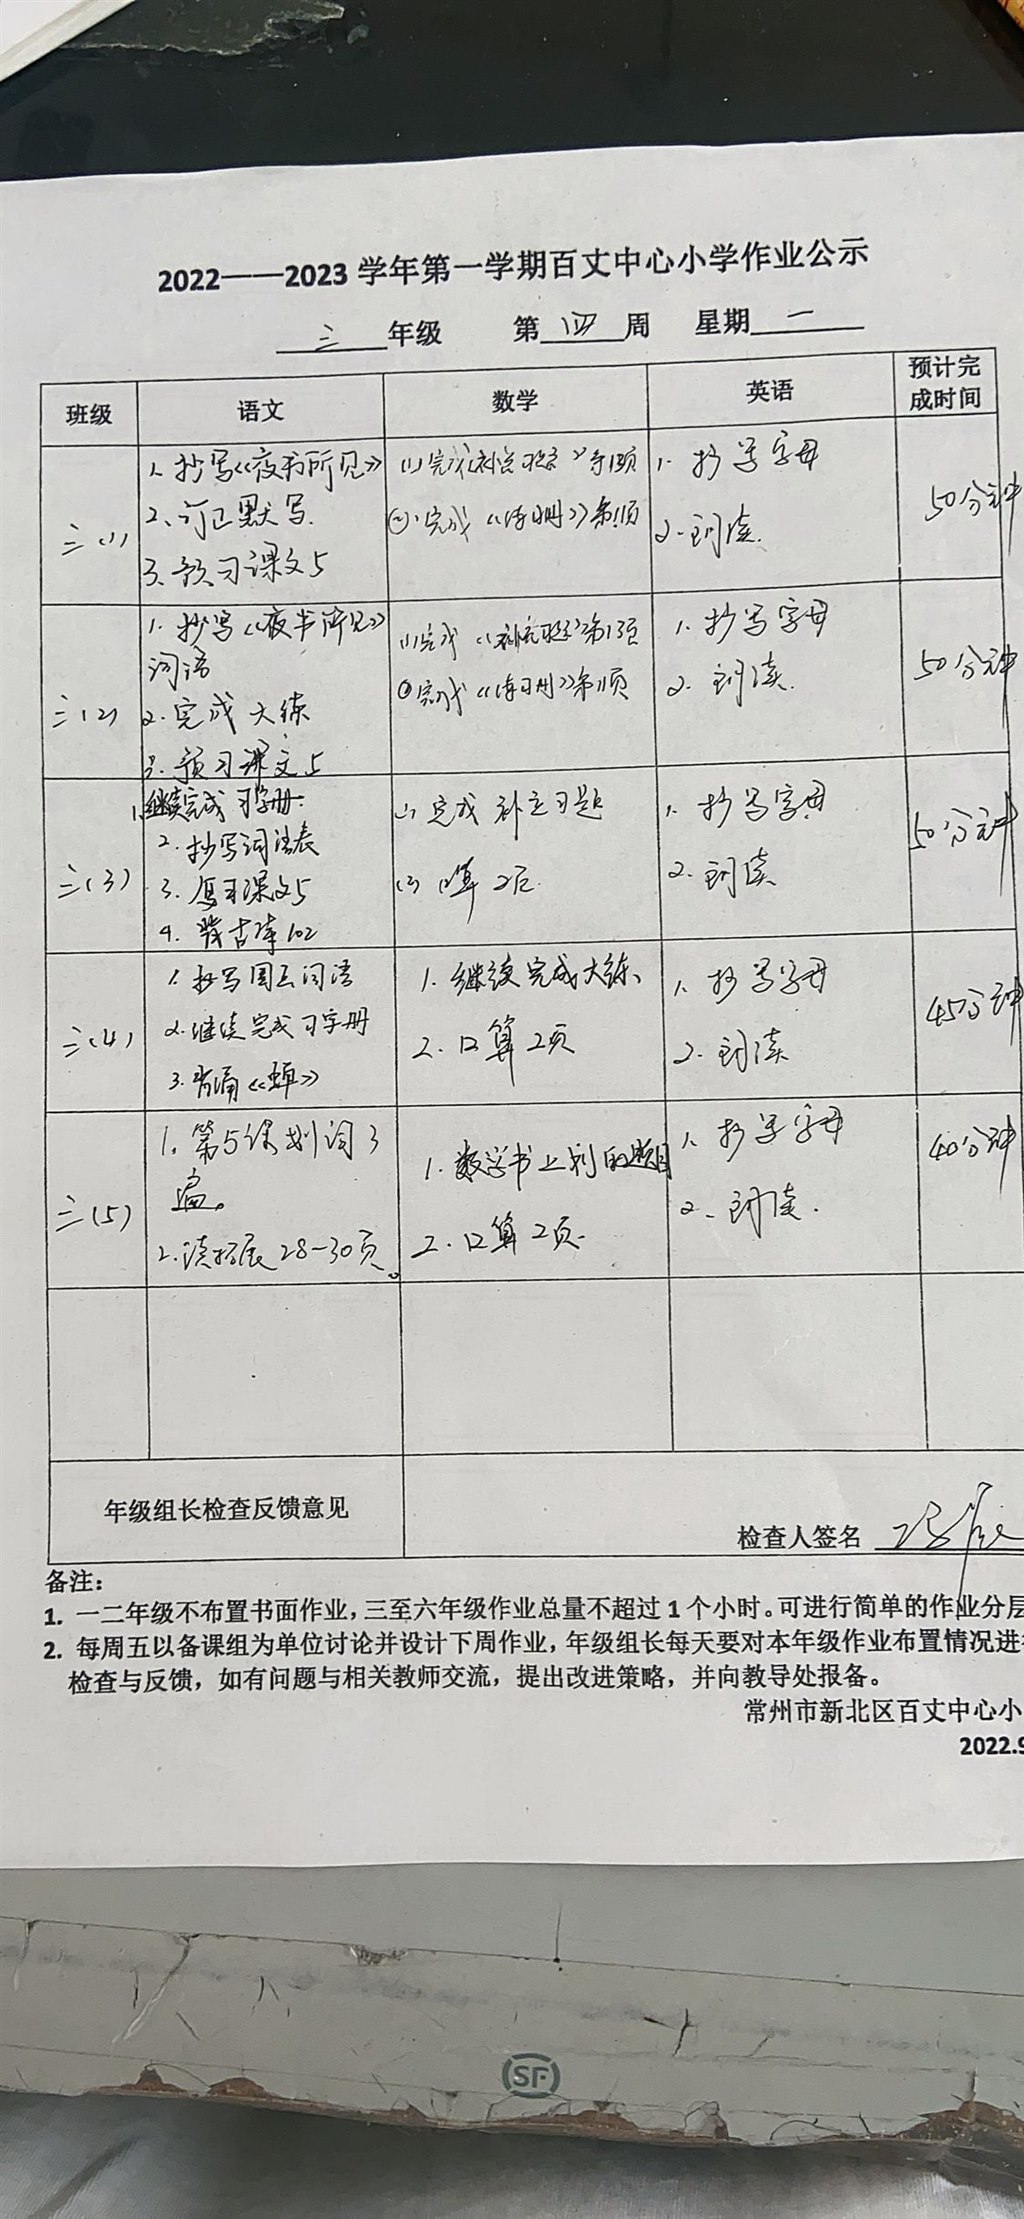 2022——2023学年第一学期百丈中心小学作业公示
三 年级 第 四 周 星期 一
班级 语文 数学 英语 预计完成时间
三(1)
1. 抄写《夜书所见》
2. 订正默写.
3. 预习课文5
(1)完成补充习题 第13页
(2)完成《练习册》第11页
1. 抄写字母
2. 朗读.
50分钟
三(2)
1. 抄写《夜书所见》
词语
2. 完成大练
3. 预习课文5
(1)完成《补充习题》第13页
②完成《练习册》第11页
1. 抄写字母
2. 朗读.
50分钟
三(3)
1.继续完成习字册.
2. 抄写词语表
3. 复习课文5
4. 背古诗102
(1) 完成补充习题
(2) 口算2页.
1. 抄写字母
2. 朗读
50分钟
三(4)
1. 抄写周五词语
2. 继续完成习字册
3. 背诵《蝉》
1. 继续完成大练
2. 口算2页
1. 抄写字母
2. 朗读
45分钟
三(5)
1. 第5课划词3
遍。
2. 读拓展28-30页。
1. 数学书上划的题目
2. 口算2页.
1. 抄写字母
2. 朗读.
40分钟
年级组长检查反馈意见
检查人签名
备注：
1. 一二年级不布置书面作业，三至六年级作业总量不超过1个小时。可进行简单的作业分层
2. 每周五以备课组为单位讨论并设计下周作业，年级组长每天要对本年级作业布置情况进行
检查与反馈，如有问题与相关教师交流，提出改进策略，并向教导处报备。
常州市新北区百丈中心小
2022.9
SF